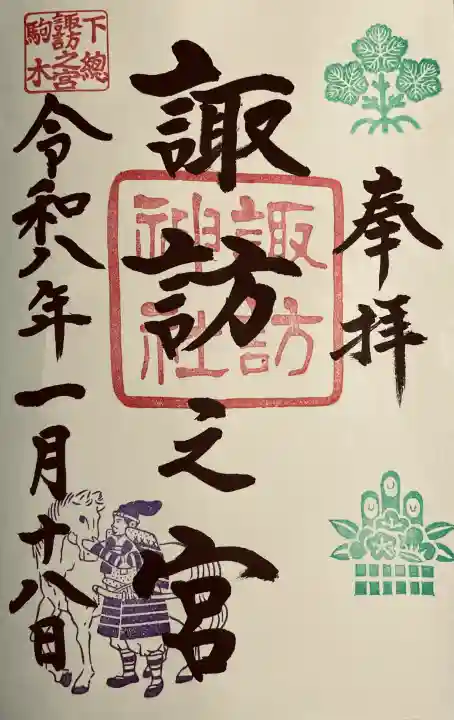 奉拝
諏訪之宮
諏訪
神社
令和八年一月十八日
下總
諏訪之宮
駒木